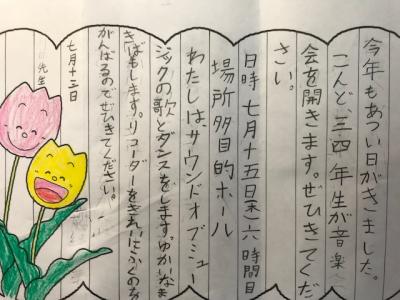 今年もあつい日がきました。
こんど、三四年生が音楽
会を開きます。ぜひきてくだ
さい。
日時七月十五日(木)六時間目
場所多目的ホール
わたしは、サウンドオブミュー
ジックの歌とダンスをします。ゆかいなま
きばもします。リコーダーをきれいにふくのを
がんばるのでぜひきてください。
七月十二日
先生